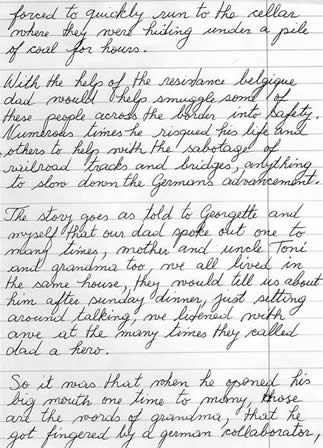 forced to quickly run to the cellar
where they were hiding under a pile
of coal for hours.
With the help of the resistance belgique
dad would help smuggle some of
these people across the border into safety.
Numerous times he risqued his life and
others to help with the sabotage of
railroad tracks and bridges, anything
to slow down the Germans advancement.
The story goes as told to Georgette and
myself that our dad spoke out one to
many times, mother and uncle Toni
and grandma too, we all lived in
the same house, they would tell us about
him after sunday dinner, just sitting
around talking, we listened with
awe at the many times they called
dad a hero.
So it was that when he opened his
big mouth one time to many, those
are the words of grandma, that he
got fingered by a german collaborator,